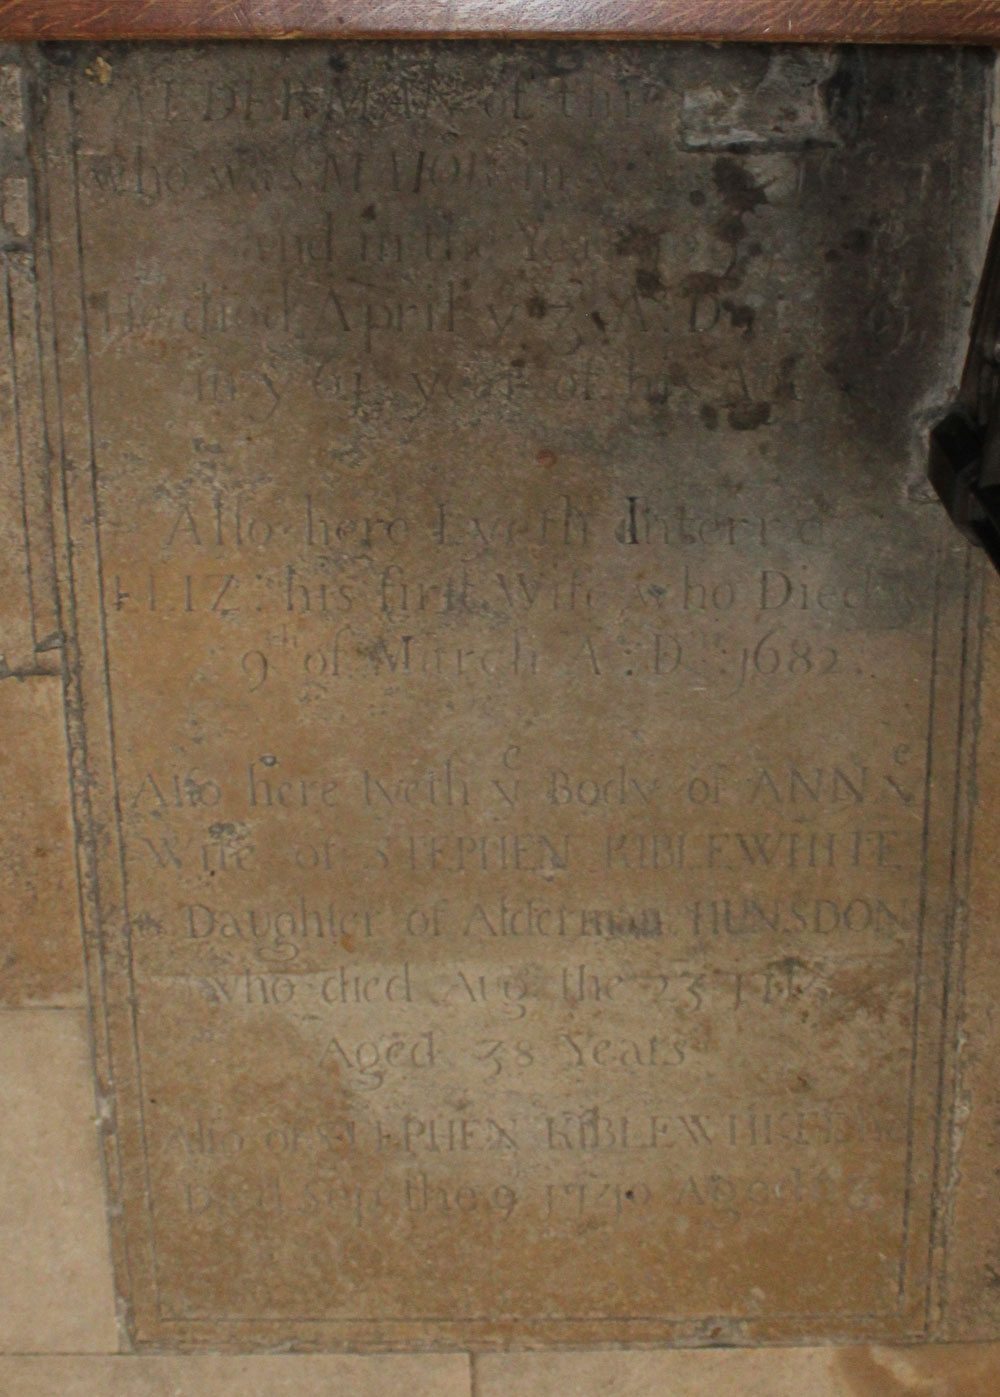 ALDERMAN of this
who was MAJOR in yͤ
and in the Year
He died April yͤ 3 A: D
in yͤ 61 year of his Age
Also here Lyeth Interred
ELIZ: his first Wife who Died
9ᵗʰ of March A: D: 1682
Also here lyeth yͤ Body of ANN yͤ
Wife of STEPHEN KIBLEWHITE
Daughter of Alderman HUNSDON
who died Aug the 23
Aged 38 Years
Also of STEPHEN KIBLEWHITE he
Died Sep the 9 1740 Aged